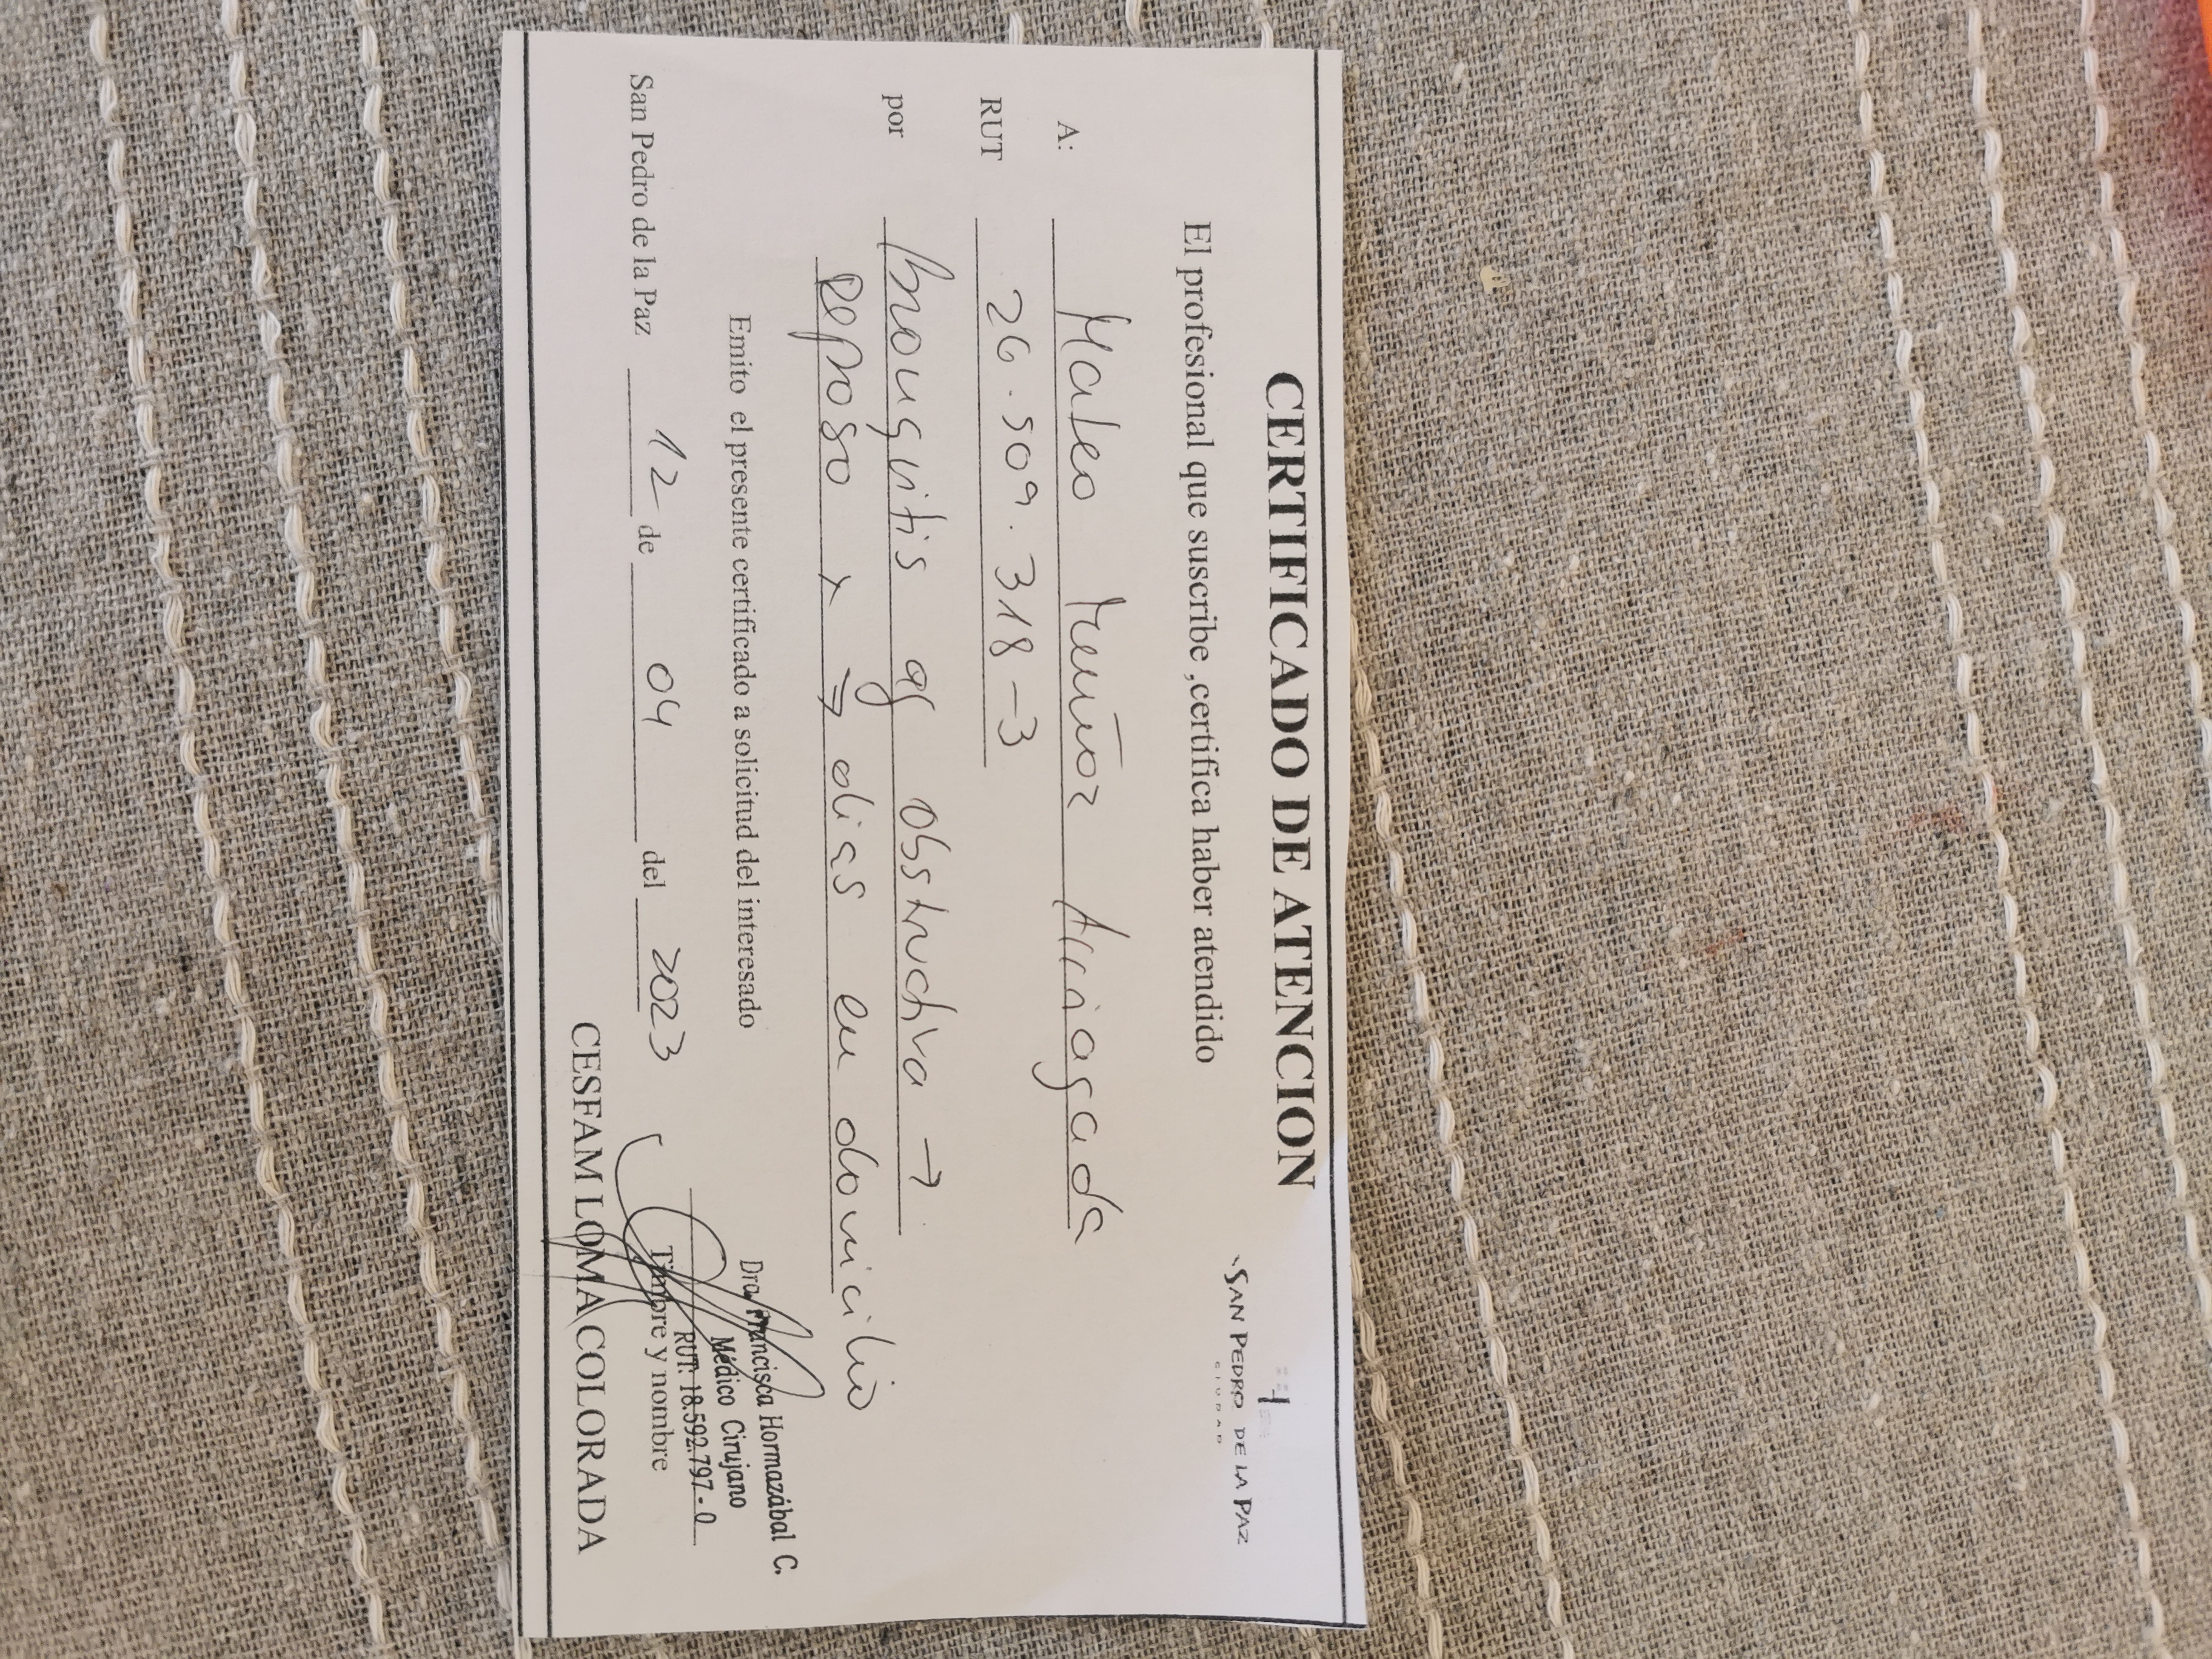 SAN PEDRO DE LA PAZ
CERTIFICADO DE ATENCION
El profesional que suscribe ,certifica haber atendido
A: Mateo Muñoz Arriagada
RUT 26.509.318-3
por bronquitis ag obstructiva →
Reposo x 7 dias en domicilio
Emito el presente certificado a solicitud del interesado
San Pedro de la Paz 12 de 04 del 2023
Dra. Francisca Hormazábal C.
Médico Cirujano
RUT: 18.592.797-0
Timbre y nombre
CESFAM LOMA COLORADA